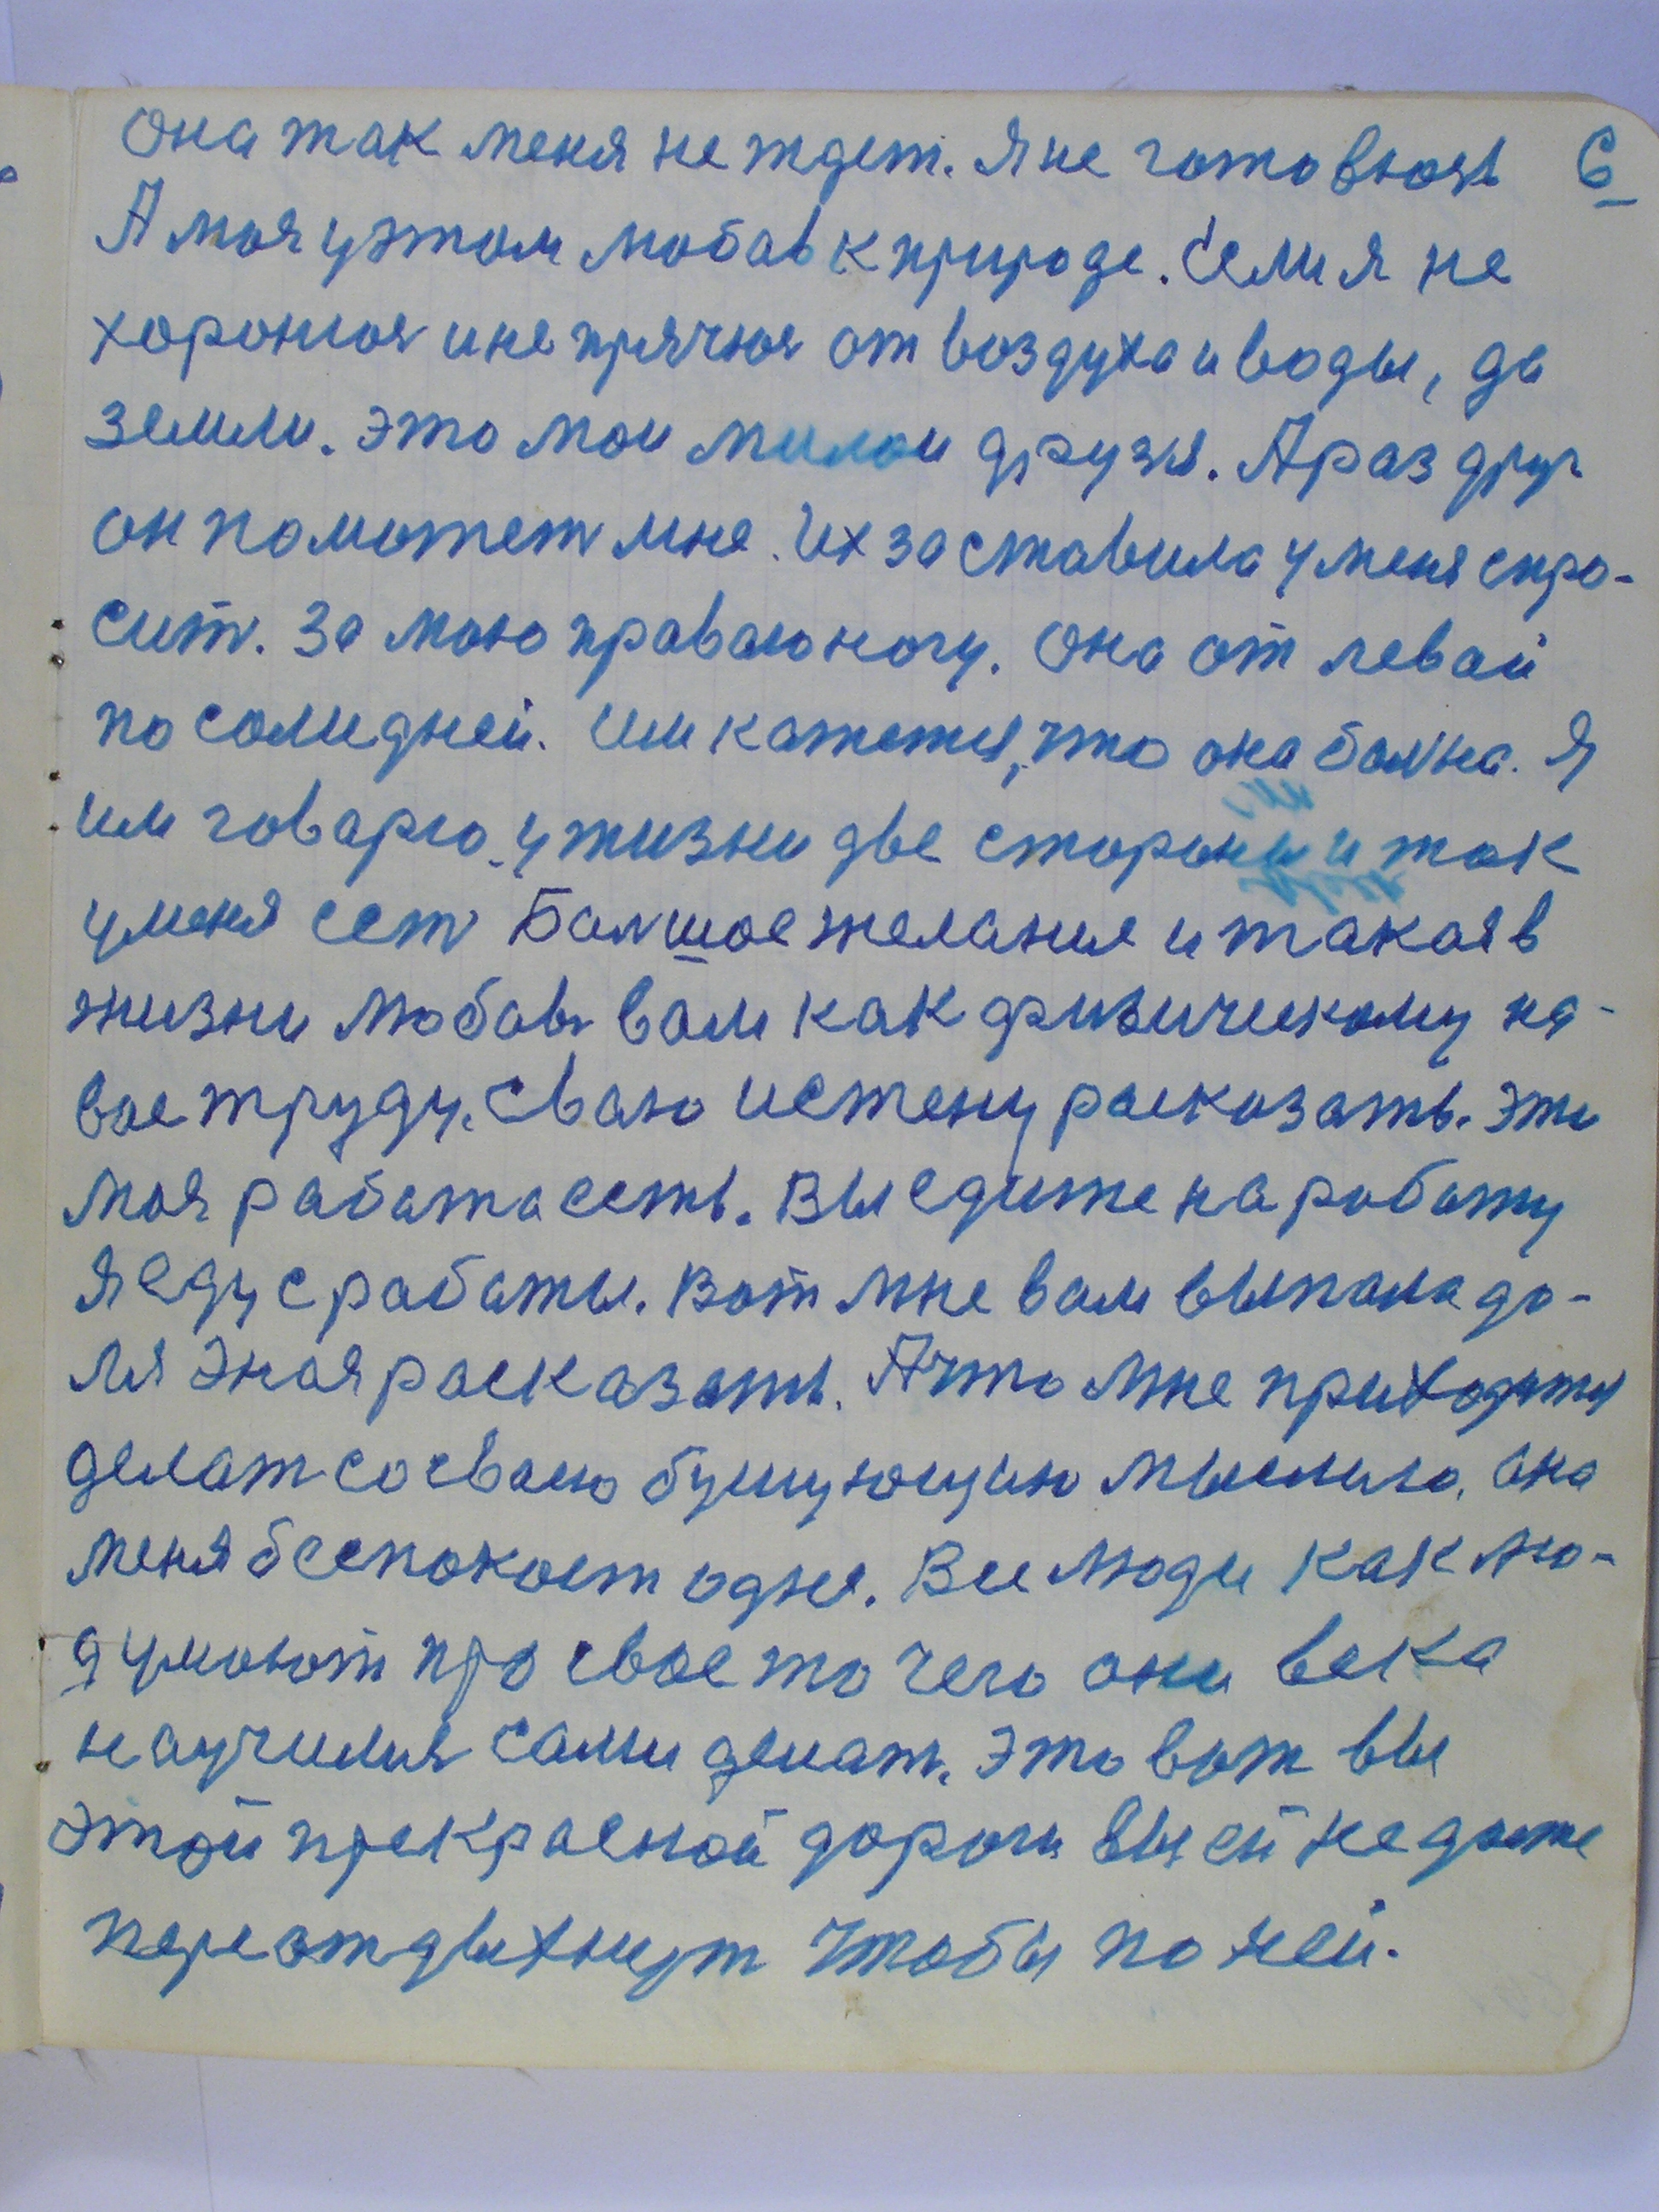 она так меня не ждет. Я не готовюсь 6
А моя у этом любов к природе. Если я не
хоронюя и не прячюя от воздуха и воды, да
земли. это мои милои друзя. А раз друг
он поможет мне. Их заставила у меня спро-
сит. За мою праваю ногу. Она от левай
посолидней. Им кажется, что она болна. Я
им говарю, у жизни две стороны и так
у меня ест Балшое желание и такая в
жизни любовь вам как физическому на-
вое труду. Сваю истену расказать. Это
моя работа есть. Вы едите на работу
я еду с работы. Вот мне вам выпала до-
ля эная расказать. А что мне приходится
делат со сваею бушующию мыслию, она
меня беспокоет одне. Все люди как лю-
думают про свое то чего они века
научилия сами делат. Это вот вы
этой прекрасной дороги вы ей не даете
переотдыхнут чтобы по ней.